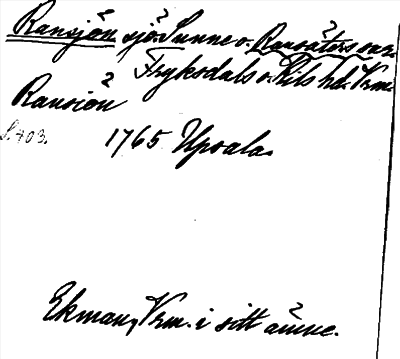 Ransjön sjö Sunne o. Ransäters snr.
Fryksdals o. Kils hd. Vrm.
Ransiön
S. 403.
1765 Upsala.
Ekman, Vrm. i sitt ämne.